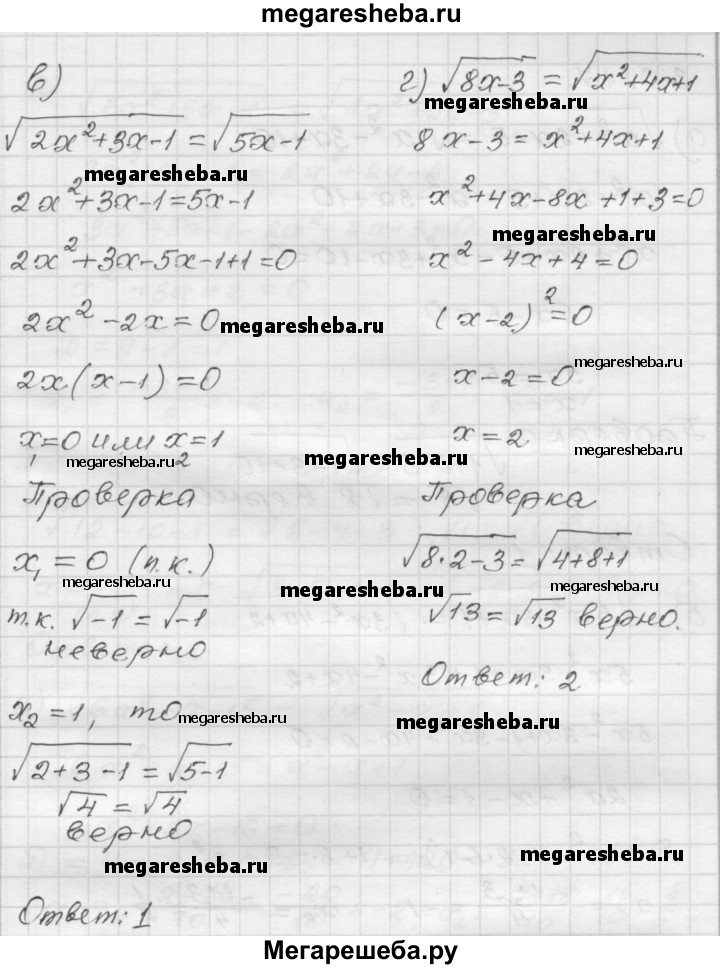 megaresheba.ru
в)
√(2x²+3x-1) = √(5x-1)
megaresheba.ru
2x²+3x-1=5x-1
2x²+3x-5x-1+1=0
2x²-2x=0
megaresheba.ru
2x(x-1)=0
x₁=0 или x₂=1
megaresheba.ru
Проверка
x₁=0 (п.к.)
megaresheba.ru
т.к. √-1 = √-1
неверно
x₂=1, то
megaresheba.ru
√(2+3-1) = √(5-1)
√4 = √4
верно
megaresheba.ru
Ответ: 1
г) √(8x-3) = √(x²+4x+1)
megaresheba.ru
8x-3=x²+4x+1
x²+4x-8x+1+3=0
megaresheba.ru
x²-4x+4=0
(x-2)²=0
megaresheba.ru
x-2=0
x=2
megaresheba.ru
Проверка
√(8·2-3) = √(4+8+1)
megaresheba.ru
√13 = √13 верно.
Ответ: 2
megaresheba.ru
megaresheba.ru
Мегарешеба.ру